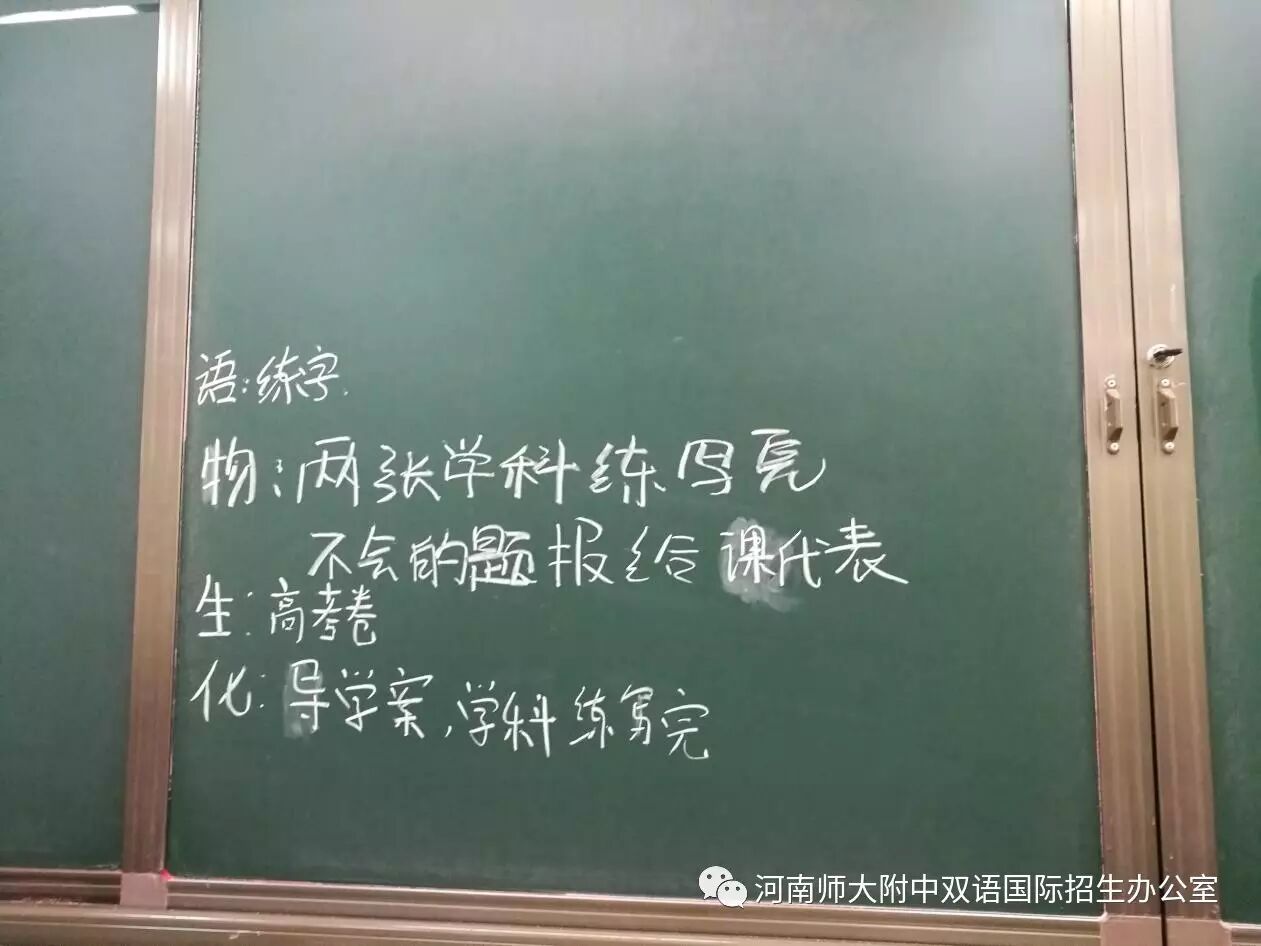 语:练字.
物:两张学科练写完
不会的题报给课代表
生:高考卷
化:导学案,学科练写完
河南师大附中双语国际招生办公室